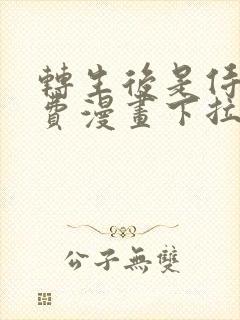 轉生後是侍
費漫畫下拉
公子無雙